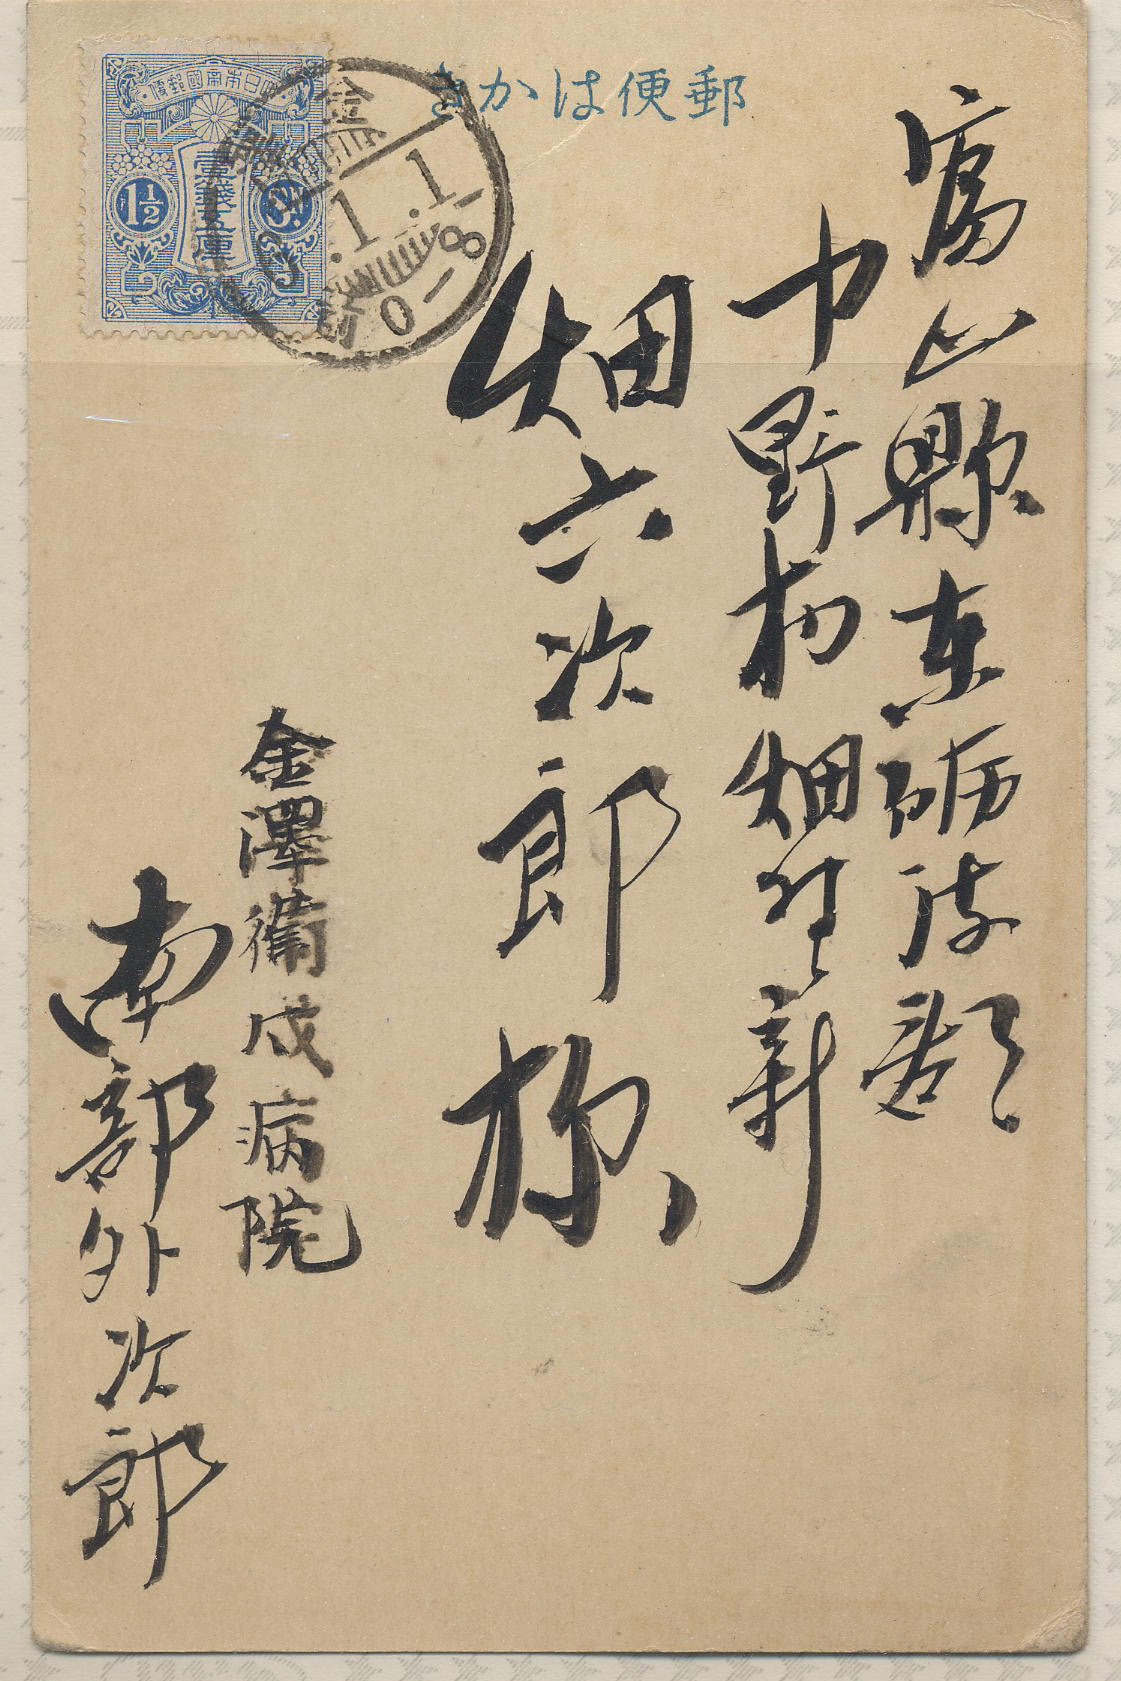 郵便はかき
富山縣東礪波郡
中野村畑野新
畑六次郎様
金澤衛戍病院
南部外次郎
大日本帝國郵便
壹錢五厘
1½
金澤
.1.1
前0-8